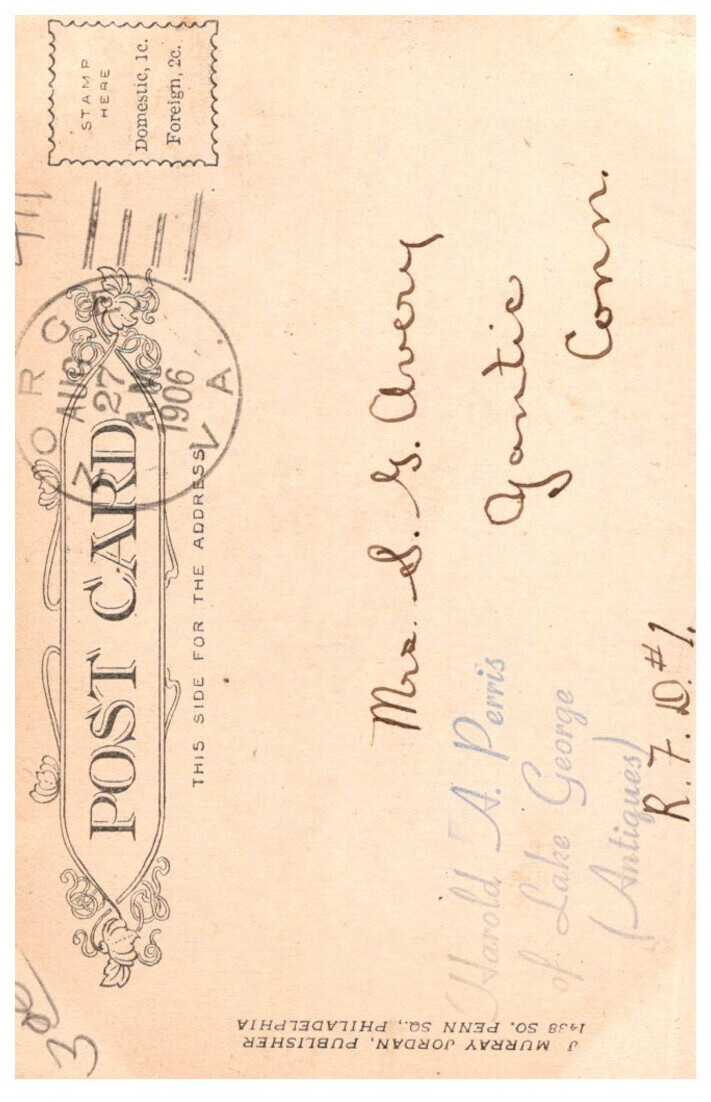 POST CARD
THIS SIDE FOR THE ADDRESS
STAMP
HERE
Domestic, 1c.
Foreign, 2c.
ORC
AUG
27
AM
1906
VA.
Mrs. S. G. Avery
Yantic
Conn.
R. F. D. #1.
Harold A. Perris
of Lake George
(Antiques)
J MURRAY JORDAN, PUBLISHER
1438 SO. PENN SQ., PHILADELPHIA